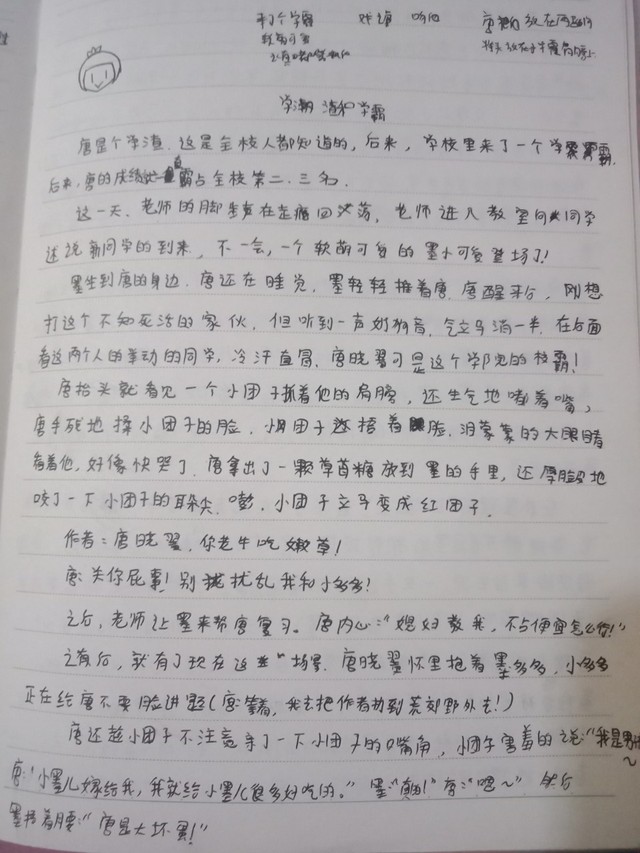 两个学霸
软萌可害
学渣和学霸
唐是个学渣.这是全校人都知道的,后来,学校里来了一个学霸.
后来,唐的成绩 占全校第二.三名.
这一天.老师的脚步声在走廊回荡,老师进入教室向同学
述说新同学的到来,不一会,一个软萌可爱的墨小可爱登场了!
墨坐到唐的身边.唐还在睡觉.墨轻轻推着唐.唐醒来后,刚想
打这个不知死活的家伙,但听到一声奶狗音.气立马消一半.在后面
看这两个人的举动的同学,冷汗直冒.唐晓翼可是这个学院的校霸!
唐抬头就看见一个小团子抓着他的肩膀,还生气地嘟着嘴,
唐手贱地揉小团子的脸.小团子还捂着脸.泪蒙蒙的大眼睛
看着他,好像快哭了.唐拿出了一颗草莓糖放到墨的手里,还厚脸皮地
咬了一下小团子的耳朵尖.嘭.小团子立马变成红团子.
作者:唐晓翼,你老牛吃嫩草!
唐:关你屁事!别扰乱我和小多多!
之后,老师让墨来帮唐复习.唐内心:"媳妇教我,不占便宜怎么行!"
之后,就有了现在这 场景.唐晓翼怀里抱着墨多多,小多多
正在给唐不要脸讲题(唐:等着,我去把作者扔到荒郊野外去!)
唐还趁小团子不注意亲了一下小团子的嘴角,小团子害羞的说:"我是男 ~
唐:"小墨儿嫁给我,我就给小墨儿很多好吃的."墨:"真的!"唐:"嗯~" 然后
墨捂着腰:"唐是大坏蛋!"